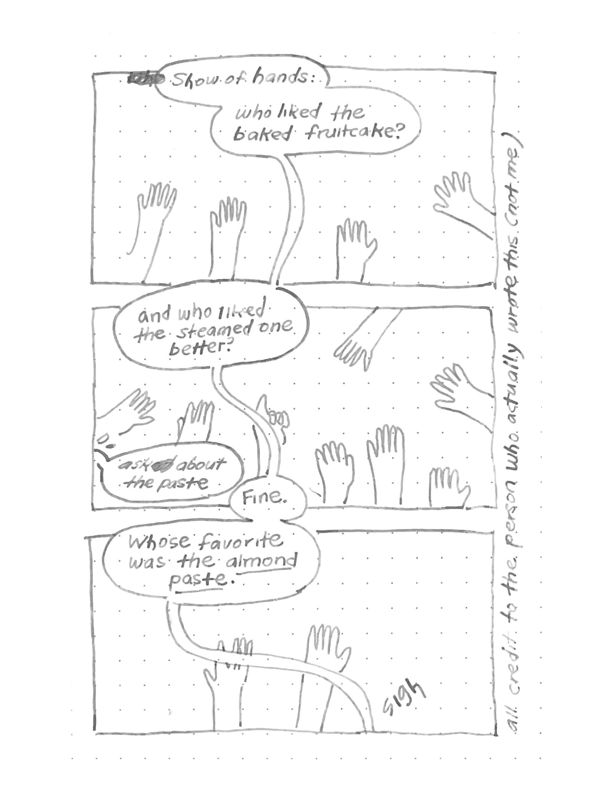 Show of hands:
who liked the
baked fruitcake?
and who liked
the steamed one
better?
ask about
the paste
Fine.
Whose favorite
was the almond
paste.
sigh
all credit to the person who actually wrote this (not me)